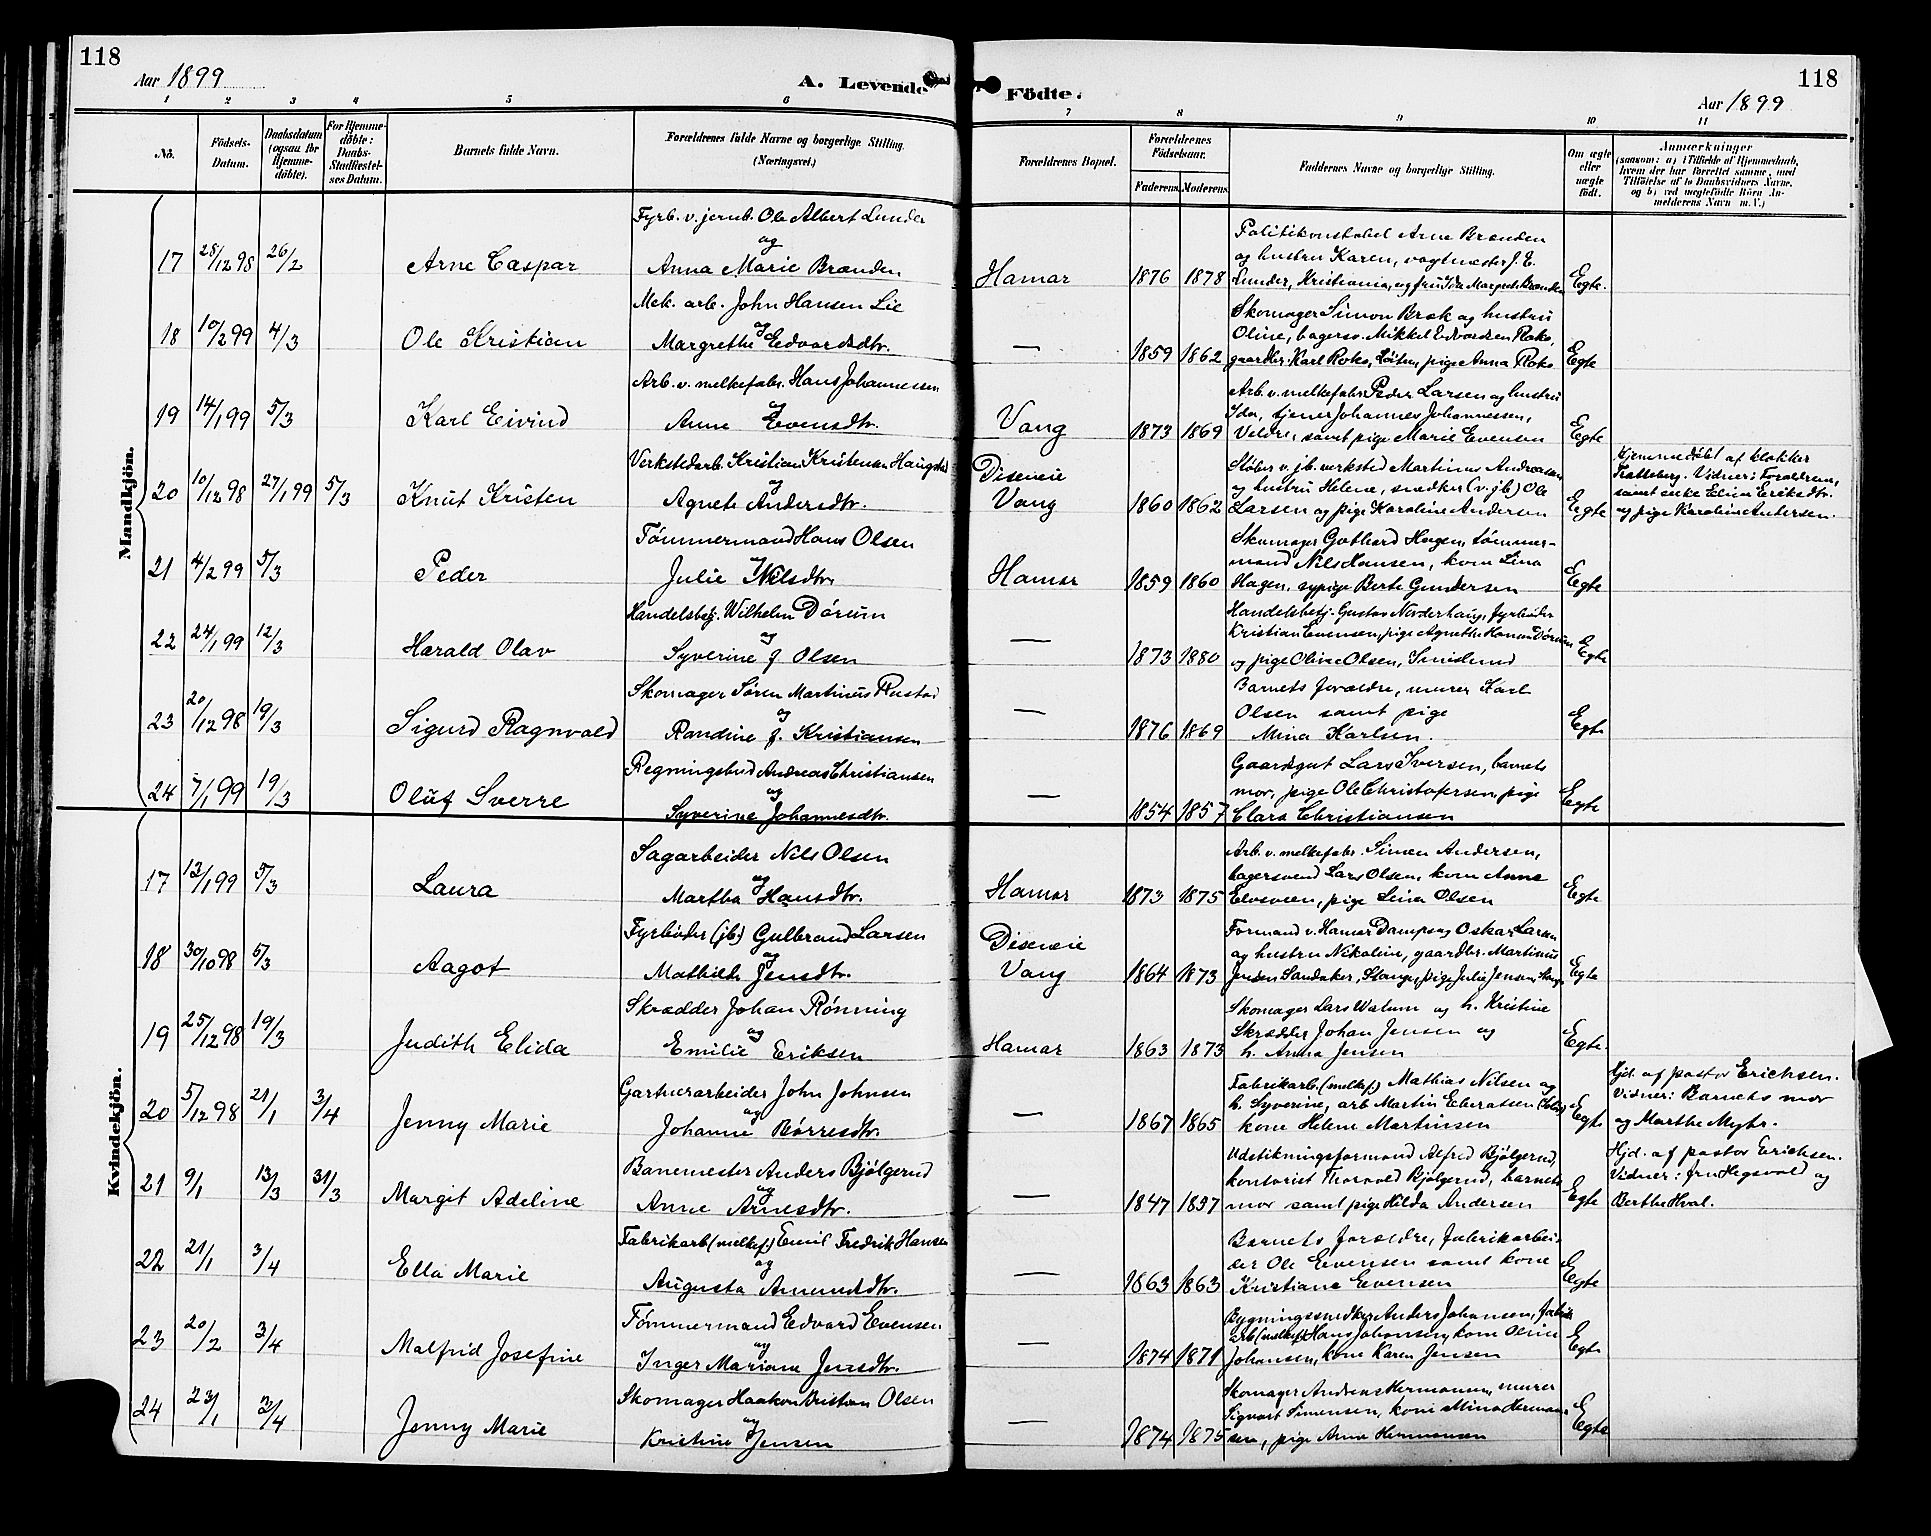 118
Aar 1899
A. Levende
Födte.
118
Aar 1899
1 2 3 4 5 6 7 8 9 10 11
No.
Födsels-Datum.
Daabsdatum (ogsaa for Hjemme-döbte).
For Hjemme-döbte: Daabs-Stadfæstel-ses Datum.
Barnets fulde Navn.
Forældrenes fulde Navne og borgerlige Stilling.
(Næringsvei.)
Forældrenes Bopæl.
Forældrenes Födselsaar.
Faderens. Moderens.
Faddernes Navne og borgerlige Stilling.
Om ægte eller uægte födt.
Anmærkninger
(saasom: a) i Tilfælde af Hjemmedaab, hvem der har forrettet samme, med Tilföielse af to Daabsvidners Navne, og b) ved uægtefödte Börn Anmelderens Navn m. V.)
Mandkjön.
17 28/12 98 26/2 Arne Caspar
Fyrb. v. jernb. Ole Albert Lunder
og
Anna Marie Brænden
Hamar 1876 1878
Politikonstabel Arne Brænden
og hustru Karen, vagtmester J. E.
Lunder, Kristiania, og frk Ida Margrete Brænden
Egte.
18 10/2 99 4/3 Ole Kristian
Mek. arb. John Hansen Lie
og
Margrethe Edvardsdtr.
— 1859 1862
Skomager Simon Bræk og hustru
Oline, bagersv. Mikkel Edvardsen Roko,
gaardbr. Karl Roko, Löten, pige Anna Roko
Egte
19 14/1 99 5/3 Karl Eivind
Arb. v. melkefabr. Hans Johannessen
og
Anne Evensdtr.
Vang 1873 1869
Arb. v. melkefabr. Peder Larsen og hustru
Ida, tjener Johannes Johannessen,
Veldre, samt pige Marie Evensen
Egte
20 10/12 98 27/1 99 5/3 Knut Kristen
Verkstedarb. Kristian Kristensen Haugstad
og
Agnete Andersdtr.
Diseneie
Vang 1860 1862
Støber v. jb. verksted Martinus Andreassen
og hustru Helene, snedker (v. jb) Ole
Larsen og pige Karoline Andersen
Egte
Hjemmedøbt af klokker
Vidner: Forældrene,
samt enke Eline Eriksdtr.
og pige Karoline Andersen.
21 4/2 99 5/3 Peder
Tømmermand Hans Olsen
og
Julie Nilsdtr.
Hamar 1859 1860
Skomager Gothard Hagen, tømmer-
mand Nils Hansen, kone Lina
Hagen, sypige Berte Gundersen
Egte
22 24/1 99 12/3 Harald Olav
Handelsbetj. Wilhelm Dørum
og
Syverine f. Olsen
— 1873 1880
Handelsbetj. Gustav Norderhaug, fyrbøder
Kristian Evensen, pige Agnethe Hansen Dørum
og pige Oline Olsen, Smidsrud
Egte
23 20/12 98 19/3 Sigurd Ragnvald
Skomager Søren Martinius Rustad
og
Randine f. Kristiansen
— 1876 1869
Barnets forældre, murer Karl
Olsen samt pige
Mina Karlsen.
Egte
24 7/1 99 19/3 Oluf Sverre
Regningsbud Andreas Christiansen
og
Syverine Johannesdtr.
— 1854 1857
Gaardsgut Lars Iversen, barnets
mor, pige Ole Christofersen, pige
Clara Christiansen
Egte
Kvindekjön.
17 12/1 99 5/3 Laura
Sagarbeider Nils Olsen
og
Martha Hansdtr.
Hamar 1873 1875
Arb. v. melkefabr. Simen Andersen,
bagersvend Lars Olsen, kone Anne
pige Lina Olsen
Egte
18 30/10 98 5/3 Aagot
Fyrbøder (jb.) Gulbrand Larsen
og
Mathilde Jensdtr.
Diseneie
Vang 1864 1873
Formand v. Hamar Dampsag Oskar Larsen
og hustru Nikoline, gaardbr. Martinius
Jensen Sandaker, Stange, pige Julie Jensen, Stange
Egte
19 25/12 98 19/3 Judith Elida
Skrædder Johan Rønning
og
Emilie Eriksen
Hamar 1863 1873
Skomager Lars Watum og h. Kristine
Skrædder Johan Jensen og
h. Anna Jensen
Egte.
20 5/12 98 21/1 3/4 Jenny Marie
Gartnerarbeider John Johnsen
og
Johanne Børresdtr.
— 1867 1865
Fabrikarb. (melkef.) Mathias Nilsen og
h. Syverine, arb Martin
kone Helene Martinsen
Egte
Hjd. af pastor Erichsen.
Vidner: Barnets mor
og Marthe Myhr.
21 9/1 13/3 31/3 Margit Adeline
Banemester Anders Bjølgerud
og
Anne Arnesdtr.
— 1847 1857
Udstikningsformand Alfred Bjølgerud,
kontorist Thorvald Bjølgerud, barnets
mor samt pige Hilda Andersen
Egte
Hjd. af pastor Erichsen.
Vidner: fru Hegsvold og
Berthe Hval.
22 21/1 3/4 Ella Marie
Fabrikarb (melkef.) Emil Fredrik Hansen
og
Augusta Amundsdtr.
— 1863 1863
Barnets forældre, fabrikarbei-
der Ole Evensen samt kone
Kristiane Evensen
Egte
23 20/2 3/4 Malfrid Josefine
Tømmermand Edvard Evensen
og
Inger Mariane Jensdtr.
— 1874 1871
Bygningssnedker Anders Johansen, fabrik-
arb (melkef.) Hans Johansen, kone Oline
Johansen, kone Karen Jensen
Egte
24 23/1 3/4 Jenny Marie
Skomager Haakon Kristian Olsen
og
Kristine Jensen
— 1874 1875
Skomager Andreas Hermansen, murer
Sigvart Simensen, kone Mina Herman-
sen, pige Anna Hermansen
Egte